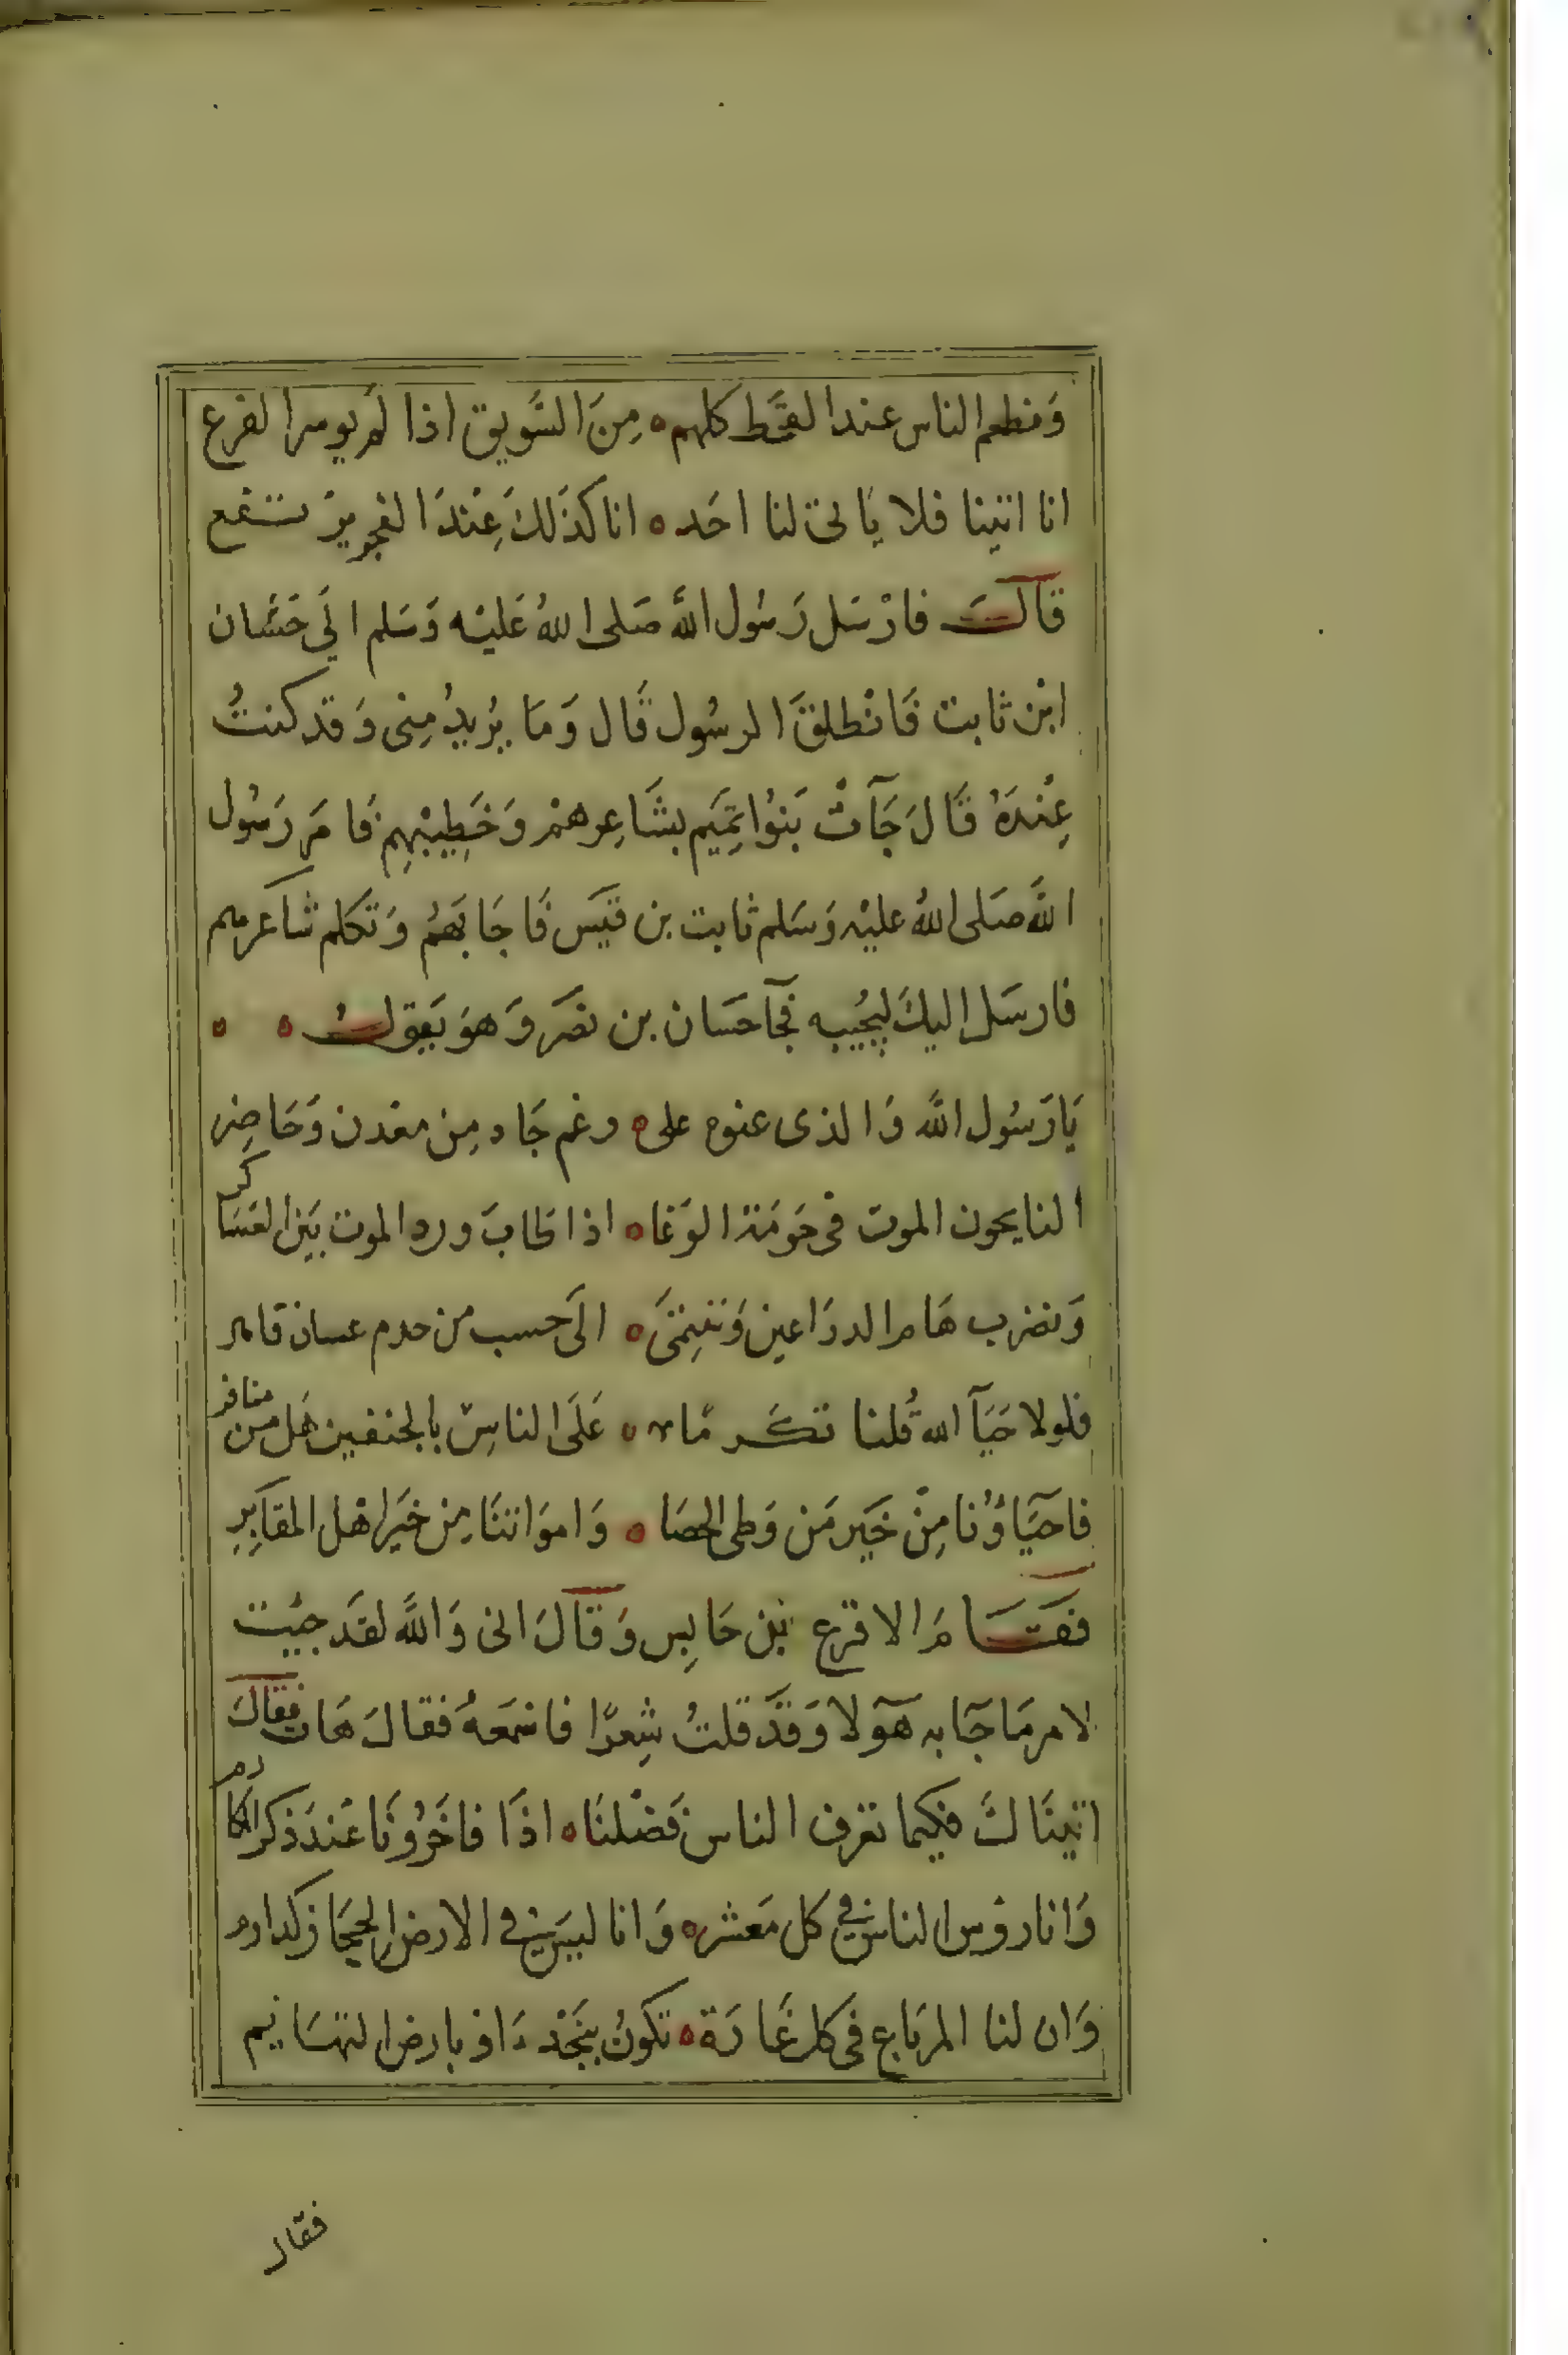 وَنطعم الناس عند القَحَط كلهم ه مِنَ السَّويق اذا لَم يونس القزع
انا اتينا فلا يَاتى لنا احَد ه انا كذَلكَ عِنْدَ الفخر نرتفع
قالت فارْسَل رَسُول اللَّه صَلى اللهُ عَليْه وَسَلم الَي حَسَّان
ابْن ثابت فَانْطلقَ الرسُول قَال وَمَا يُريدُ مِنى وَقد كنتُ
عِنْدَهُ قَالَ جَآتْ بَنوُا تمِيَم بشَاعِرهمْ وَخَطِيبْهِم فَامَر رَسُول
اللَّه صَلى اللهُ عليْه وَسَلم ثابت بن قيَس فَاجَابَهُم وَتكلم شاعرهم
فارسَل اليكَ لتجُيبه فجَآ حَسَان بن نصَر وَهوَ يَقولُ ه ه
يَا رَسُول اللَّه وَالذى عنوه على ه رغم جَاه مِن معَدن وَحَاضِر
النا يحون الموت فى حَومَة الوَغا ه اذا طابَ ورد الموت بَيَن العَسَاكر
وَنضرب هَام الدرَاعين وَننِتمَى ه الَى حسب من حرم عسان قاهر
فلولا حَيَآ الله قُلنا تكَرمًا ه عَلَى الناسِ بالجنفين هَل من منافر
فاحَيَاؤُنا مِنْ خَيَر مَن وَطى الحصَا ه وَامَواتنَا مِن خيَر اهْل المقابِرِ
فقَامَ الاقرع بْن حَابِس وَقَالَ انى وَاللَّه لقَد جيُت
لامر مَا جَآ به هَوَلا وَقَد قلتُ شِعرًا فاسْمَعهُ فقالَ هَات فقالَ
اتينَاكَ فيكيما تعرف الناس فَضْلنَا ه اذَا فاخَرُونَا عَندَ ذكر المكارم
وَانا روُس الناس فِي كل مَعشر ه وَانا ليَس فِي الارض الحِجَاز كدارم
وَان لنا المرَباع فى كل غَارَة ه تكونُ بنَجْد اوْ بارض التهَايم
فقال